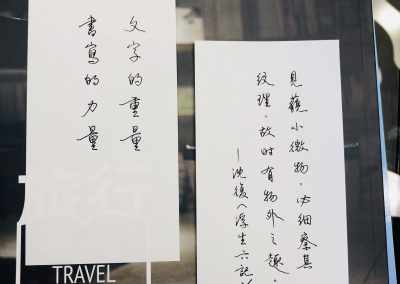 文字的重量
書寫的力量
見藐小微物，必細察其
紋理，故時有物外之趣。
—沈復〈浮生六記〉
旅行
TRAVEL